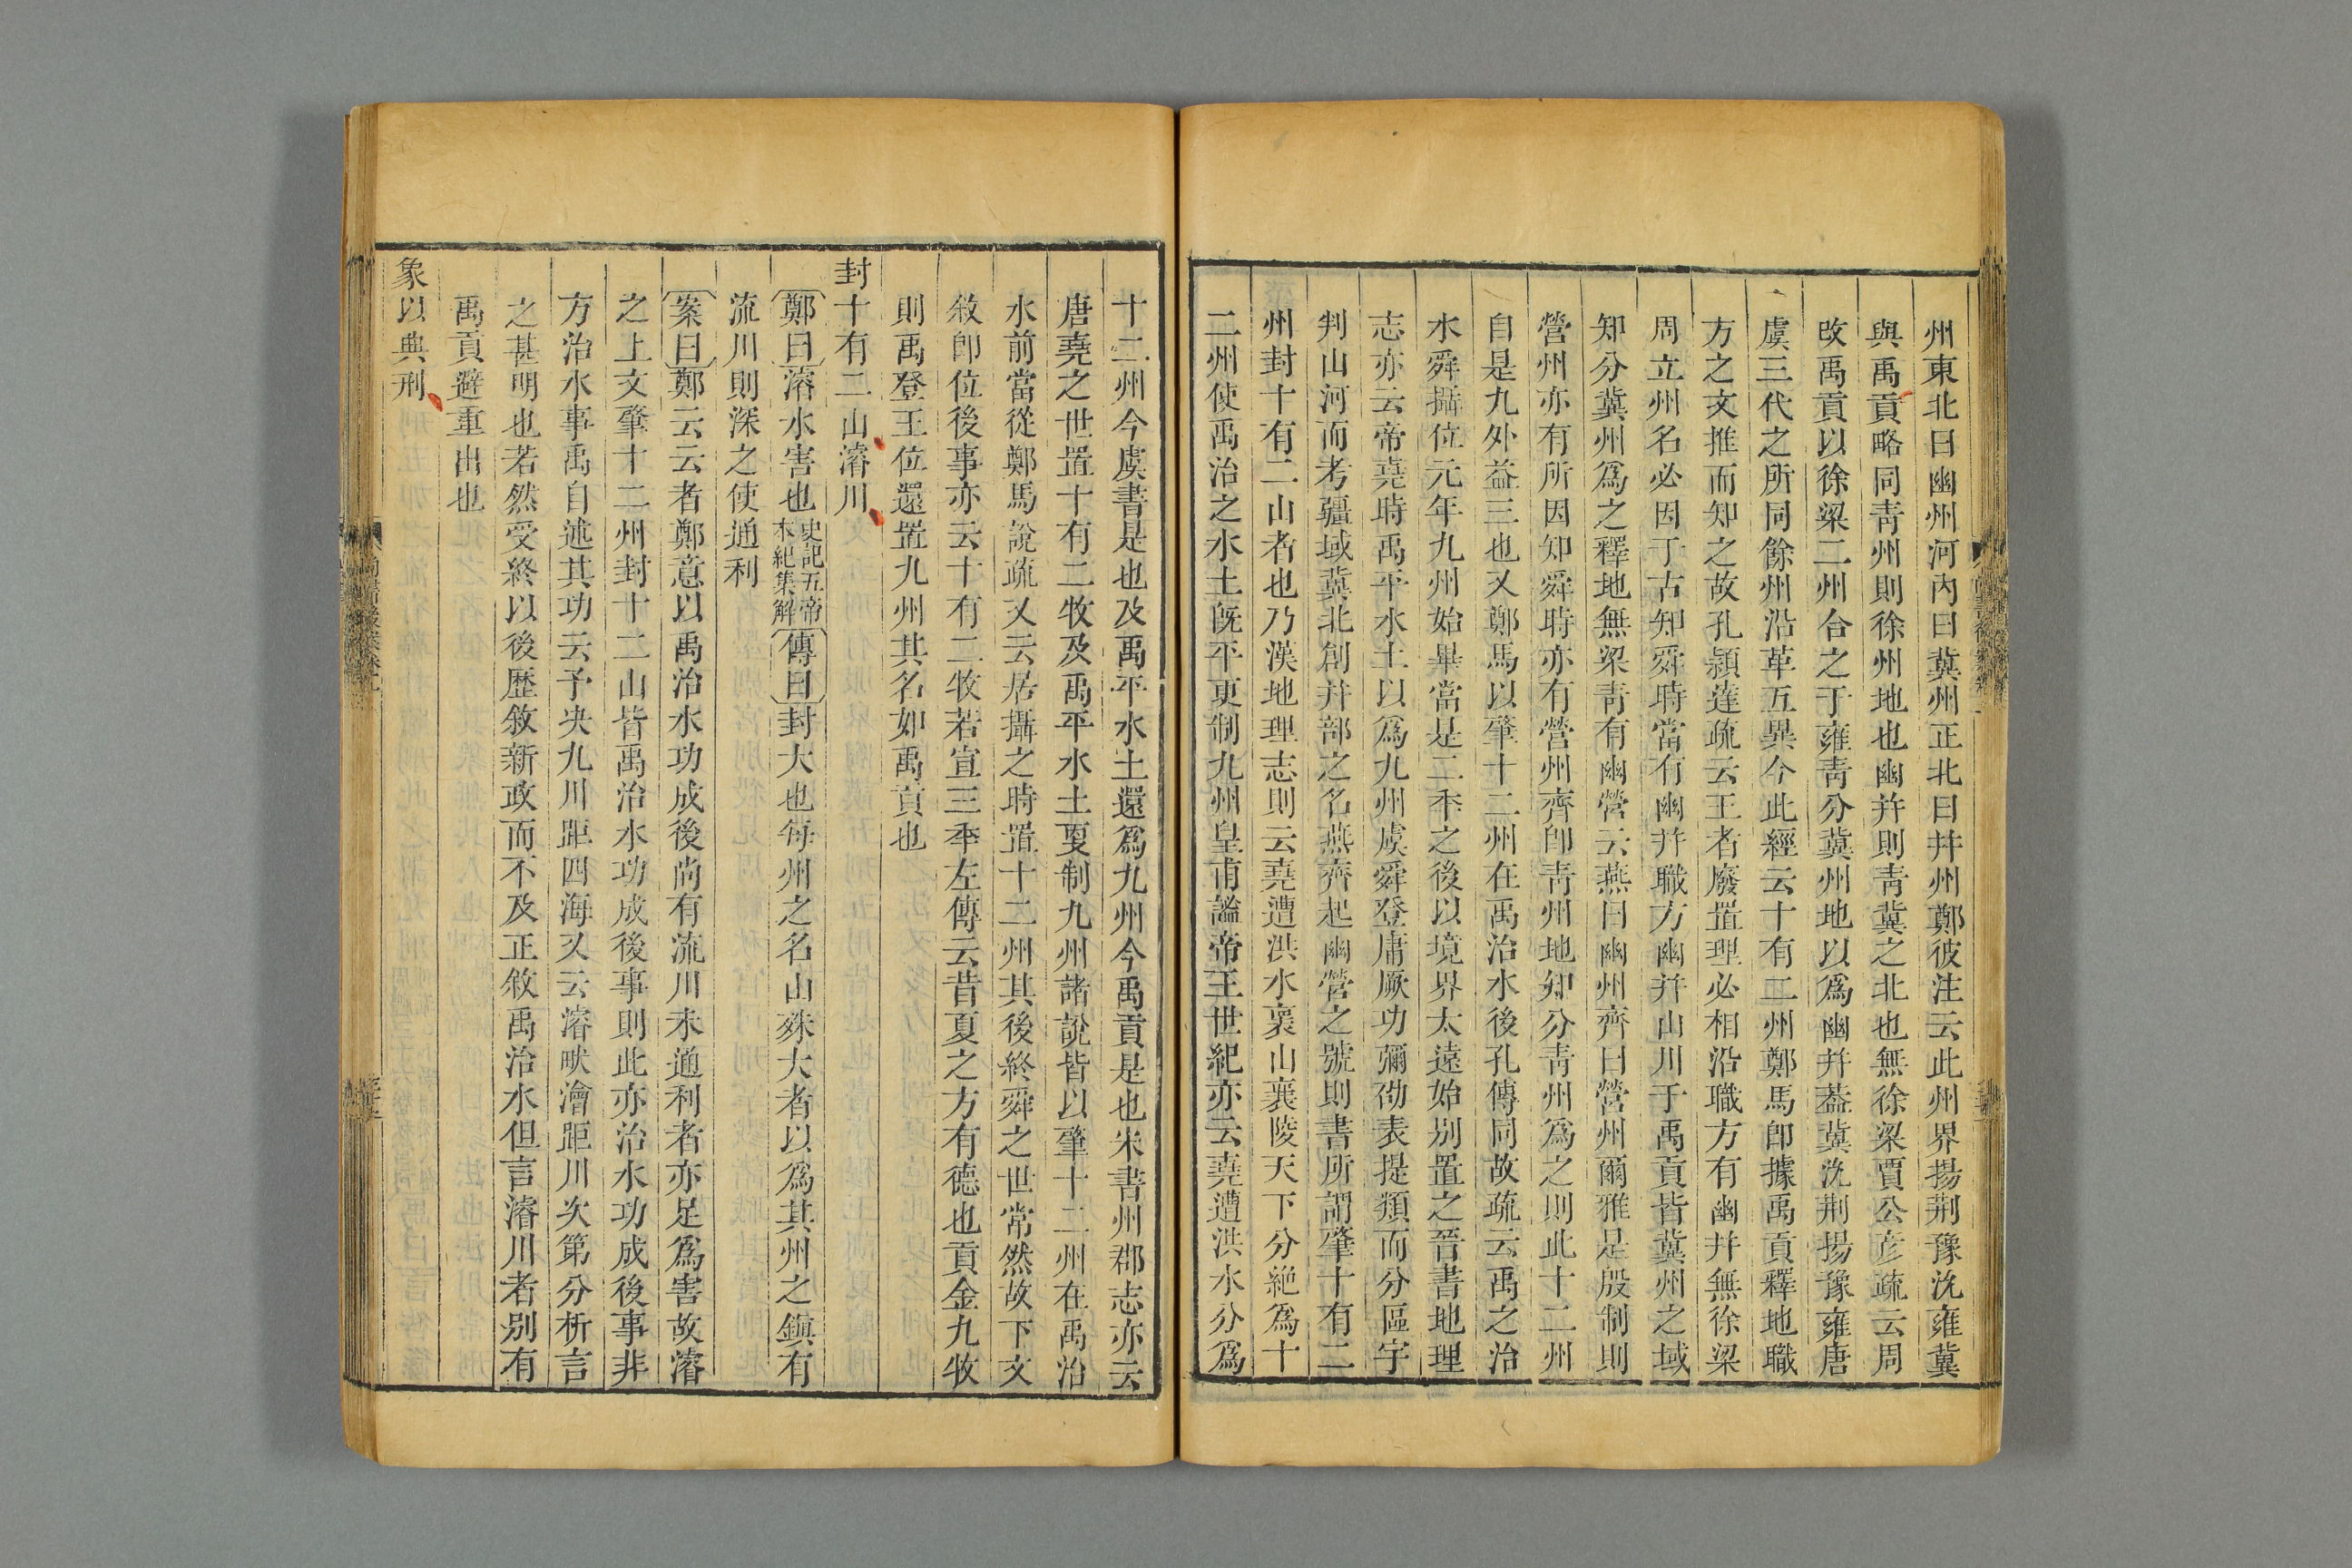 州東北曰幽州河內曰冀州正北曰幷州鄭彼注云此州界揚荆豫沇雍冀
與禹貢略同靑州則徐州地也幽幷則靑冀之北也無徐梁賈公彦疏云周
改禹貢以徐梁二州合之于雍靑分冀州地以爲幽幷葢冀沇荆揚豫雍唐
虞三代之所同餘州沿革五異今此經云十有二州鄭馬卽據禹貢釋地職
方之文推而知之故孔穎達疏云王者廢置理必相沿職方有幽幷無徐梁
周立州名必因于古知舜時當有幽幷職方幽幷山川于禹貢皆冀州之域
知分冀州爲之釋地無梁靑有幽營云燕曰幽州齊曰營州爾雅是殷制則
營州亦有所因知舜時亦有營州齊卽靑州地知分靑州爲之則此十二州
自是九外益三也又鄭馬以肇十二州在禹治水後孔傳同故疏云禹之治
水舜攝位元年九州始畢當是二秊之後以境界太遠始别置之晉書地理
志亦云帝堯時禹平水土以爲九州虞舜登庸厥功彌劭表提類而分區宇
判山河而考疆域冀北創幷部之名燕齊起幽營之號則書所謂肇十有二
州封十有二山者也乃漢地理志則云堯遭洪水褱山襄陵天下分絶爲十
二州使禹治之水土旣平更制九州皇甫謐帝王世紀亦云堯遭洪水分爲
十二州今虞書是也及禹平水土還爲九州今禹貢是也宋書州郡志亦云
唐堯之世置十有二牧及禹平水土夏制九州諸說皆以肇十二州在禹治
水前當從鄭馬說疏又云居攝之時置十二州其後終舜之世常然故下文
敘卽位後事亦云十有二牧若宣三秊左傳云昔夏之方有德也貢金九牧
則禹登王位還置九州其名如禹貢也
封十有二山濬川
鄭曰濬水害也史記五帝本紀集解傳曰封大也每州之名山殊大者以爲其州之鎭有
流川則深之使通利
案曰鄭云云者鄭意以禹治水功成後尚有流川未通利者亦足爲害故濬
之上文肇十二州封十二山皆禹治水功成後事則此亦治水功成後事非
方治水事禹自述其功云予決九川距四海又云濬畎澮距川次第分析言
之甚明也若然受終以後歷敘新政而不及正敘禹治水但言濬川者别有
禹貢避重出也
象以典刑